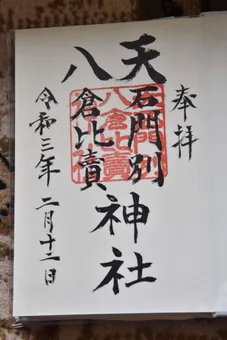 奉拝
天石門別
八倉比賣
神社
令和三年二月十二日